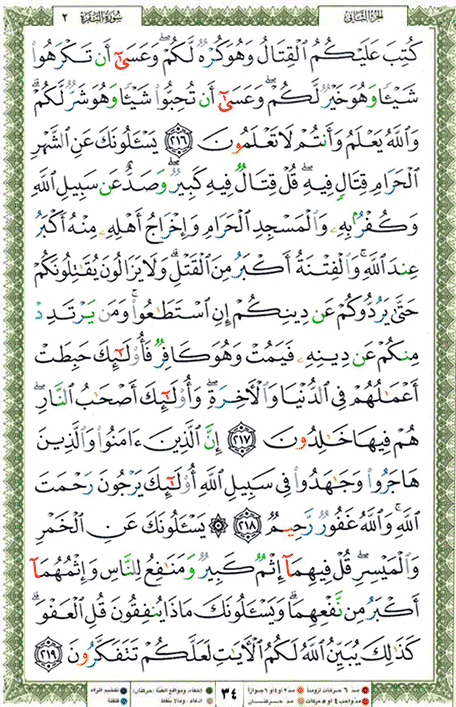 الجزء الثاني
سورة البقرة ٢
كُتِبَ عَلَيْكُمُ ٱلْقِتَالُ وَهُوَ كُرْهٌ لَّكُمْ ۖ وَعَسَىٰٓ أَن تَكْرَهُوا۟
شَيْـًٔا وَهُوَ خَيْرٌ لَّكُمْ ۖ وَعَسَىٰٓ أَن تُحِبُّوا۟ شَيْـًٔا وَهُوَ شَرٌّ لَّكُمْ ۗ
وَٱللَّهُ يَعْلَمُ وَأَنتُمْ لَا تَعْلَمُونَ ٢١٦ يَسْـَٔلُونَكَ عَنِ ٱلشَّهْرِ
ٱلْحَرَامِ قِتَالٍ فِيهِ ۖ قُلْ قِتَالٌ فِيهِ كَبِيرٌ ۖ وَصَدٌّ عَن سَبِيلِ ٱللَّهِ
وَكُفْرٌۢ بِهِۦ وَٱلْمَسْجِدِ ٱلْحَرَامِ وَإِخْرَاجُ أَهْلِهِۦ مِنْهُ أَكْبَرُ
عِندَ ٱللَّهِ ۚ وَٱلْفِتْنَةُ أَكْبَرُ مِنَ ٱلْقَتْلِ ۗ وَلَا يَزَالُونَ يُقَـٰتِلُونَكُمْ
حَتَّىٰ يَرُدُّوكُمْ عَن دِينِكُمْ إِنِ ٱسْتَطَـٰعُوا۟ ۚ وَمَن يَرْتَدِدْ
مِنكُمْ عَن دِينِهِۦ فَيَمُتْ وَهُوَ كَافِرٌ فَأُو۟لَـٰٓئِكَ حَبِطَتْ
أَعْمَـٰلُهُمْ فِى ٱلدُّنْيَا وَٱلْـَٔاخِرَةِ ۖ وَأُو۟لَـٰٓئِكَ أَصْحَـٰبُ ٱلنَّارِ ۖ
هُمْ فِيهَا خَـٰلِدُونَ ٢١٧ إِنَّ ٱلَّذِينَ ءَامَنُوا۟ وَٱلَّذِينَ
هَاجَرُوا۟ وَجَـٰهَدُوا۟ فِى سَبِيلِ ٱللَّهِ أُو۟لَـٰٓئِكَ يَرْجُونَ رَحْمَتَ
ٱللَّهِ ۚ وَٱللَّهُ غَفُورٌ رَّحِيمٌ ٢١٨ ۞ يَسْـَٔلُونَكَ عَنِ ٱلْخَمْرِ
وَٱلْمَيْسِرِ ۖ قُلْ فِيهِمَآ إِثْمٌ كَبِيرٌ وَمَنَـٰفِعُ لِلنَّاسِ وَإِثْمُهُمَآ
أَكْبَرُ مِن نَّفْعِهِمَا ۗ وَيَسْـَٔلُونَكَ مَاذَا يُنفِقُونَ قُلِ ٱلْعَفْوَ ۗ
كَذَٰلِكَ يُبَيِّنُ ٱللَّهُ لَكُمُ ٱلْـَٔايَـٰتِ لَعَلَّكُمْ تَتَفَكَّرُونَ ٢١٩
٣٤